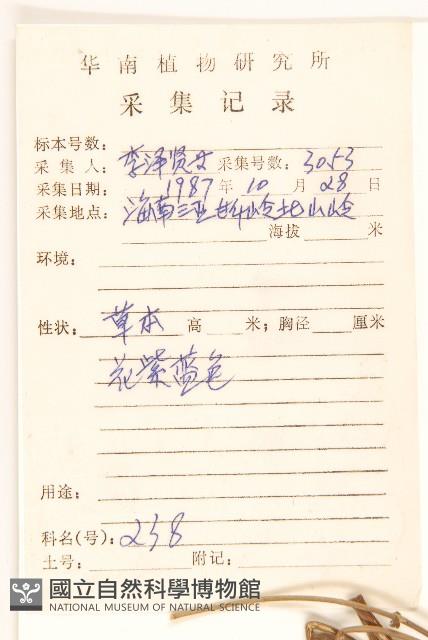 华南植物研究所
采集记录
标本号数：
采集人：李泽贤等 采集号数：3053
采集日期：1987年10月28日
采集地点：海南三亚甘什岭北山岭
海拔 米
环境：
性状：草本 高 米；胸径 厘米
花紫蓝色
用途：
科名(号)：238
土号： 附记：
國立自然科學博物館
NATIONAL MUSEUM OF NATURAL SCIENCE